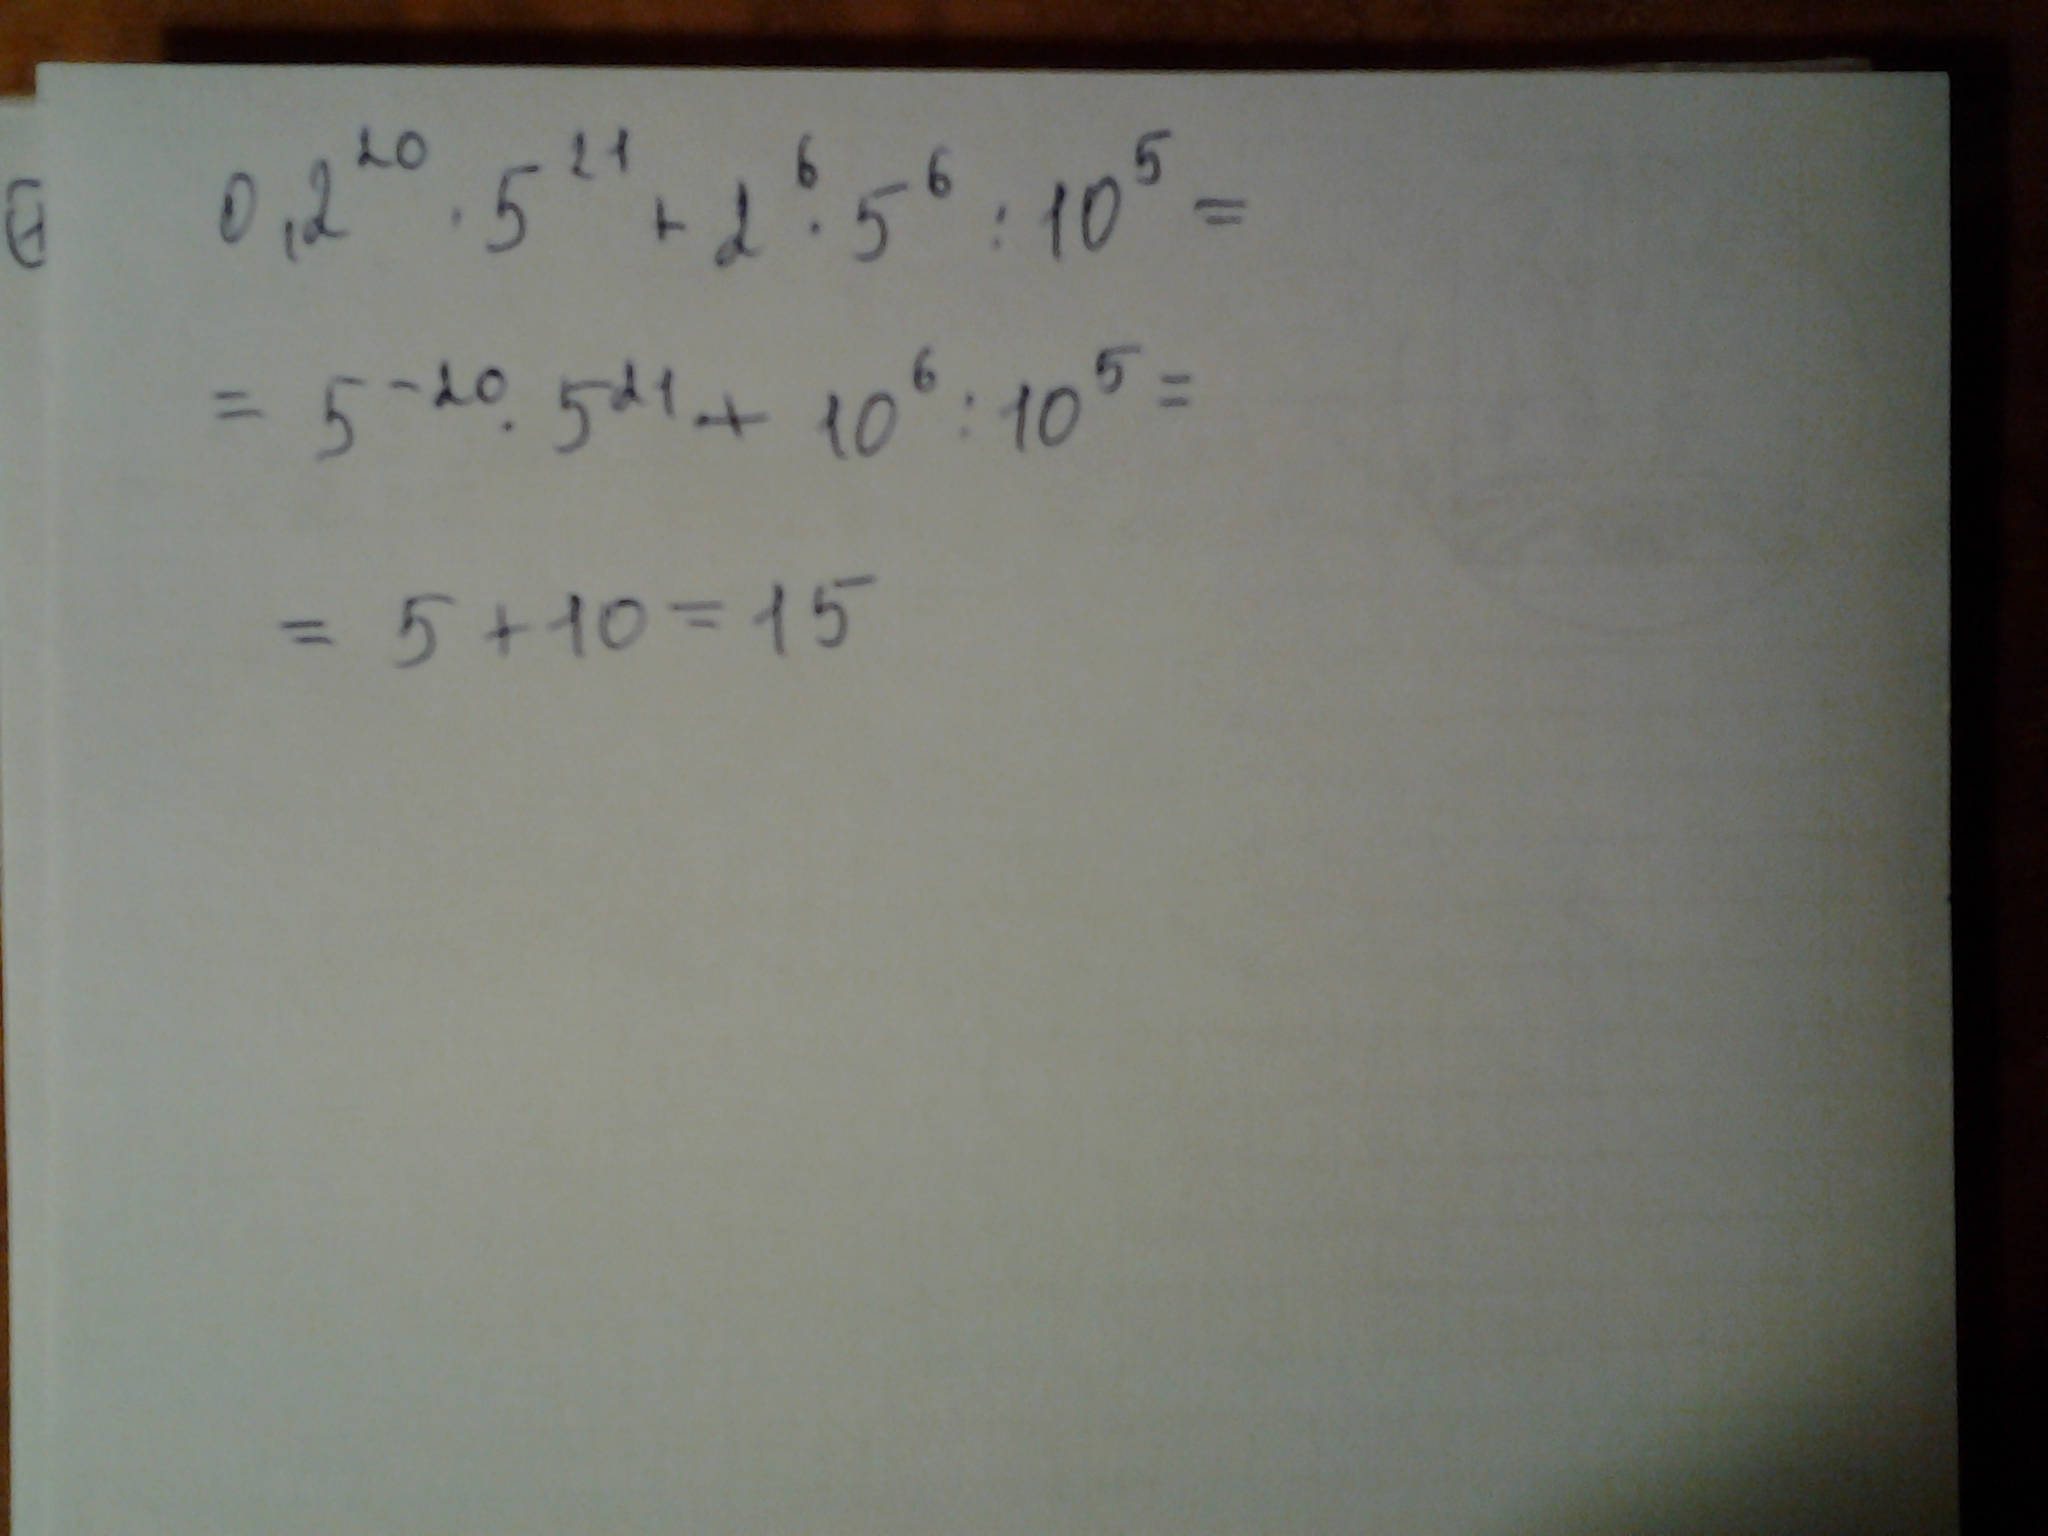 0,2²⁰ · 5²¹ + 2⁶ · 5⁶ : 10⁵ =
= 5⁻²⁰ · 5²¹ + 10⁶ : 10⁵ =
= 5 + 10 = 15